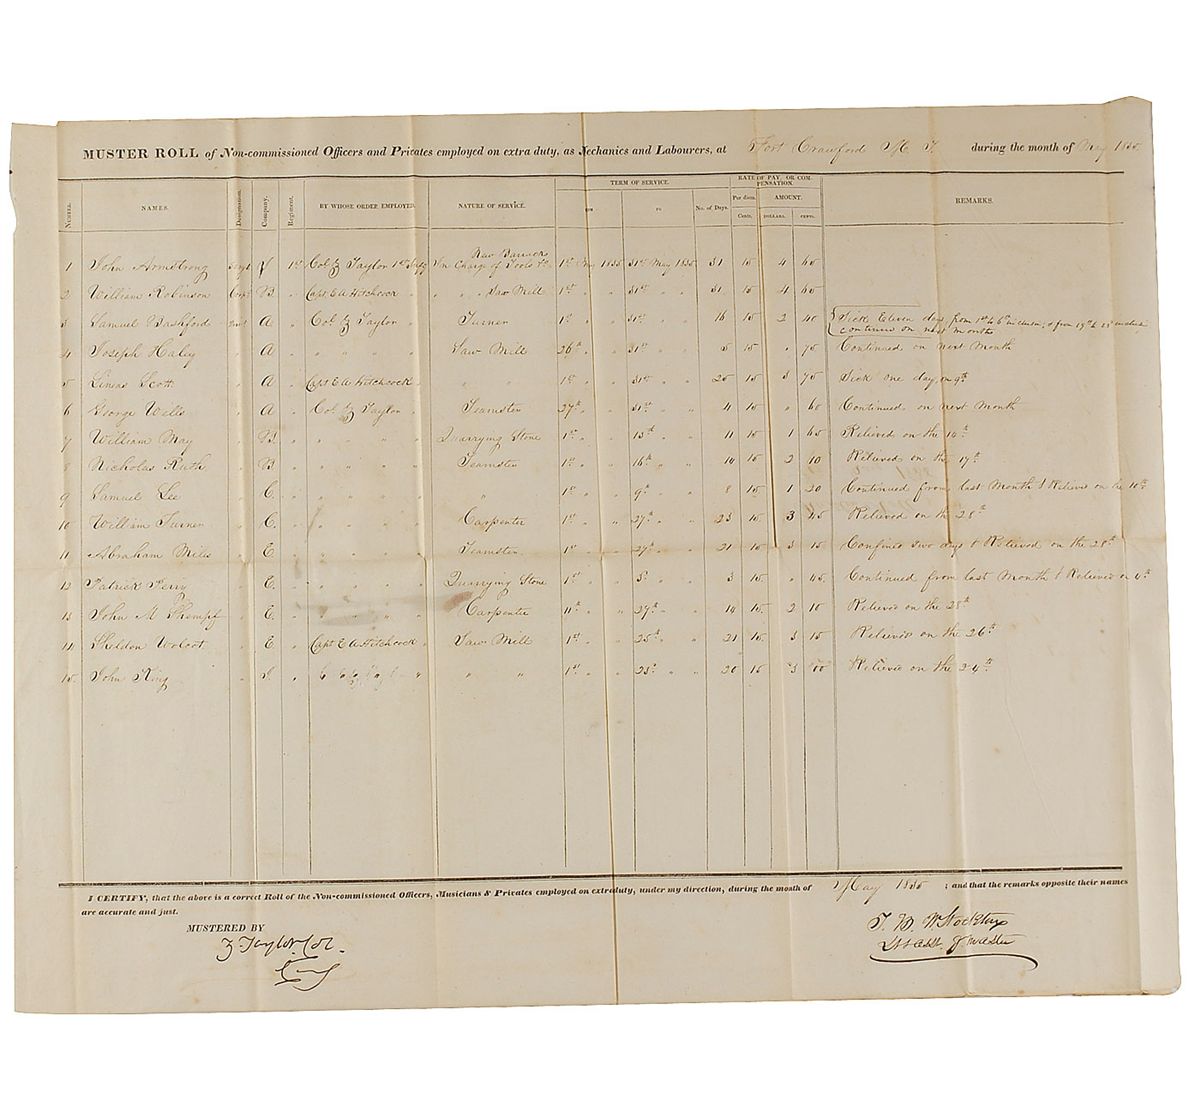 MUSTER ROLL of Non-commissioned Officers and Privates employed on extra duty, as Mechanics and Labourers, at Fort Crawford M. T. during the month of May 1835
NUMBER. NAMES. Designation. Company. Regiment. BY WHOSE ORDER EMPLOYED NATURE OF SERVICE. TERM OF SERVICE. RATE OF PAY, OR COMPENSATION. REMARKS.
TO No. of Days. Per diem. AMOUNT.
Cents. DOLLARS. CENTS.
New Barrack
1 John Armstrong Sergt 1st Col Z Taylor 1st Infy In Charge of Tools &c 1st May 1835 31st May 1835 31 15 4 65
2 William Robinson Corpl B " Capt E A Hitchcock " " " Saw Mill 1st " 31st " 31 15 4 65
3 Samuel Bashford A " Col Z Taylor " Turner 1st " 31st " " 16 15 2 40 Sick Eleven days from 1st to 6th inclusive, & from 19th to 23d inclusive
continued on next months
4 Joseph Haley " A " " " " " Saw Mill 26th " 31st " " 5 15 " 75 Continued on next Month
5 Lineas Scott " A " Capt E A Hitchcock " " " 1st " 31st " " 25 15 3 75 Sick one day, on 9th
6 George Wells " A " Col Z Taylor " Teamster 27th " 31st " " 4 15 " 60 Continued on next Month
7 William May " B " " " " " Quarrying Stone 1st " 13th " " 11 15 1 65 Relieved on the 14th
8 Nicholas Ruth " B " " " " " Teamster 1st " 16th " " 14 15 2 10 Relieved on the 17th
9 Samuel Lee " C " " " " " " 1st " 9th " " 8 15 1 20 Continued from last Month & Relieved on the 10th
10 William Turner " C. " " " " " Carpenter 1st " " 27th " " 23 15 3 45 Relieved on the 28th
11 Abraham Mills " E " " " " " Teamster 1st " " 27th " " 21 15 3 15 Confined two days & Relieved on the 28th
12 Patrick Perry " E. " " " " " Quarrying Stone 1st " " 3d " " 3 15 " 45 Continued from last Month & Relieved on 4th
13 John M " E. " " " " " Carpenter 11th " " 27th " " 14 15 2 10 Relieved on the 28th
14 Sheldon Wolcot " E " Capt E A Hitchcock " Saw Mill 1st " " 25th " " 21 15 3 15 Relieved on the 26th
15 John King " " " " " " " " " 1st " " 23d " " 20 15 3 00 Relieved on the 24th
I CERTIFY, that the above is a correct Roll of the Non-commissioned Officers, Musicians & Privates employed on extra duty, under my direction, during the month of May 1835 ; and that the remarks opposite their names
are accurate and just.
MUSTERED BY
Z. Taylor Col.
T. B. W. Stockton
Lt & Asst. Q. Master